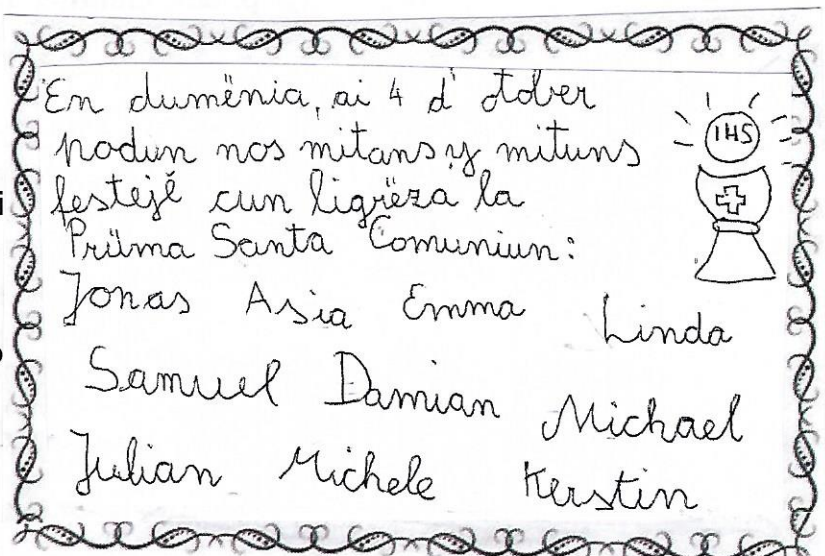 En dumënia, ai 4 d' otober
podun nos mitans y mituns
festejë cun ligrëza la
Prüma Santa Comuniun:
IHS
Jonas Asia Emma Linda
Samuel Damian Michael
Julian Michele Kerstin